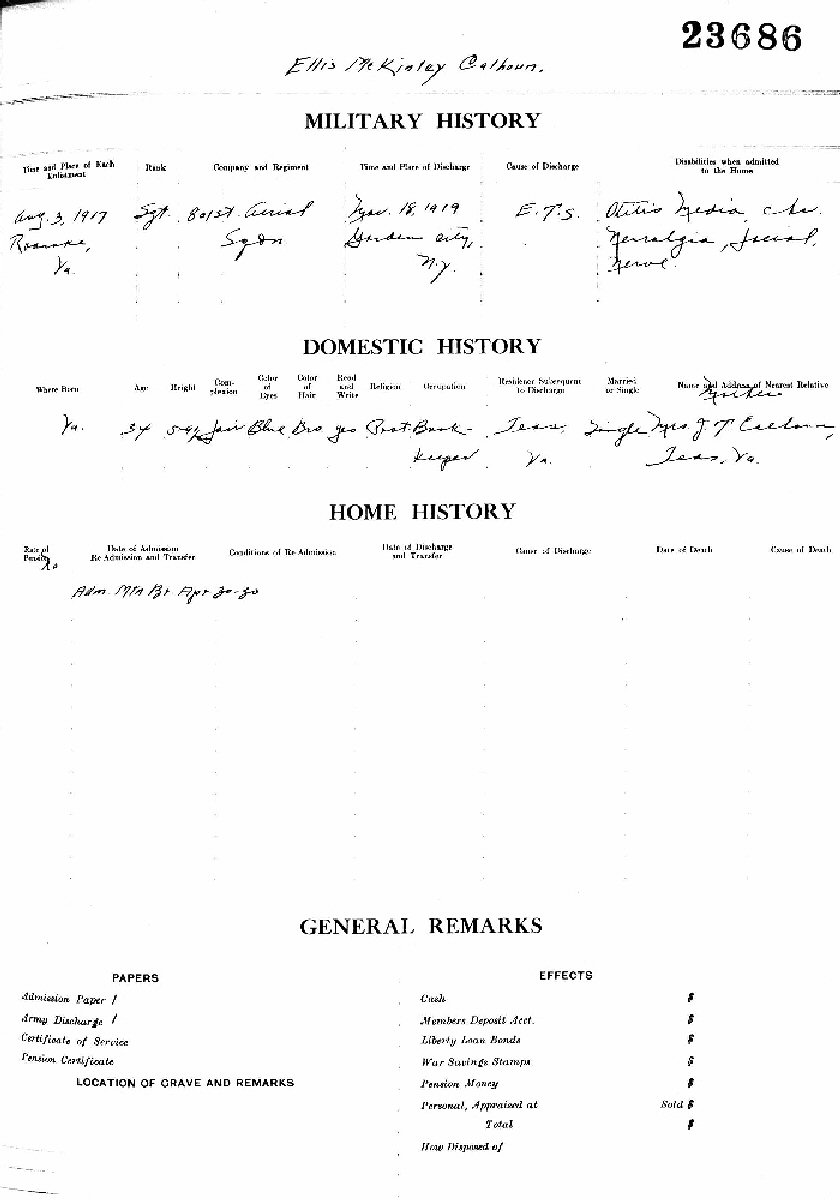 23686
Ellis McKinley Calhoun.
MILITARY HISTORY
Time and Place of Each Enlistment Rank Company and Regiment Time and Place of Discharge Cause of Discharge Disabilities when admitted to the Home
Aug. 3, 1917 Sgt. 801st. Aerial 18, 1919 E.T.S. Otitis Media,
Roanoke, Sqdn Garden City, Neuralgia, facial
Va. N.Y. Nerve.
DOMESTIC HISTORY
Where Born Age Height Complexion Color of Eyes Color of Hair Read and Write Religion Occupation Residence Subsequent to Discharge Married or Single Name and Address of Nearest Relative
Mother
Va. 34 Fair Blue Bro yes Prot. Book- Single Mrs J T Calhoun,
keeper Va. Va.
HOME HISTORY
Rate of Pension Date of Admission Re-Admission and Transfer Conditions of Re-Admission Date of Discharge and Transfer Cause of Discharge Date of Death Cause of Death
No
Adm. Mtn Br Apr 30-30
GENERAL REMARKS
PAPERS
Admission Paper 1
Army Discharge 1
Certificate of Service
Pension Certificate
LOCATION OF GRAVE AND REMARKS
EFFECTS
Cash $
Members Deposit Acct. $
Liberty Loan Bonds $
War Savings Stamps $
Pension Money $
Personal, Appraised at Sold $
Total $
How Disposed of